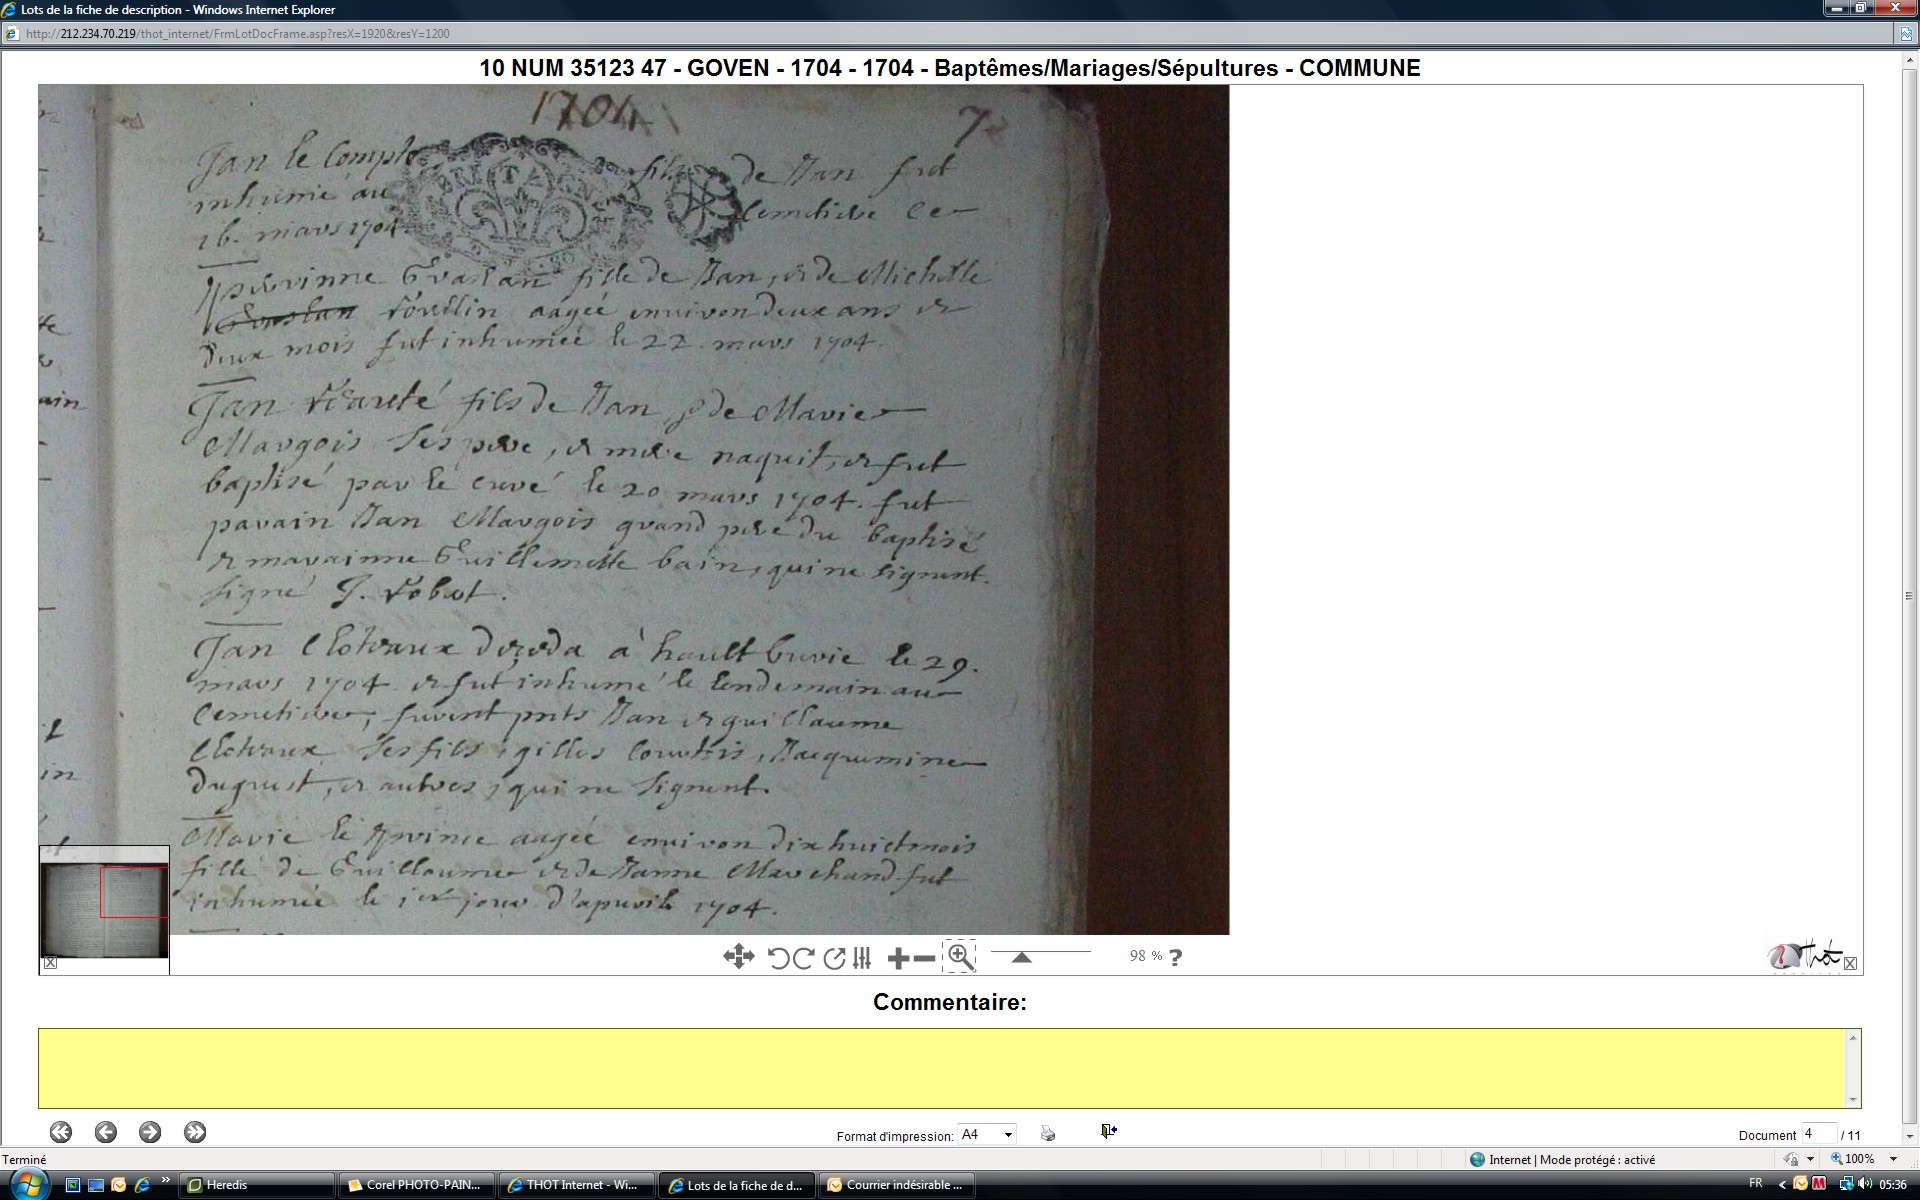 Lots de la fiche de description - Windows Internet Explorer
http://212.234.70.219/thot_internet/FrmLotDocFrame.asp?resX=1920&resY=1200
10 NUM 35123 47 - GOVEN - 1704 - 1704 - Baptêmes/Mariages/Sépultures - COMMUNE
1704
7
Jan le Compte fils de Jan fut
inhumé au Cemetiere le
16. mars 1704
fille de Jan, et de Michelle
aagée environ deux ans et
deux mois fut inhumée le 22. mars 1704.
Jan fils de Jan, et de Marie
Margois ses pere, et mere naquit, et fut
baptisé par le curé le 20 mars 1704. fut
parain Jan Margois grand pere du baptisé
et marainne Guillemette bain, qui ne signent.
signé J. Robot.
Jan deceda à hault le 29.
mars 1704 et fut inhumé le lendemain au
Cemetiere, furent pnts Jan et guillaume
ses fils, gilles Jacquemine
et autres, qui ne signent.
Marie le prince aagée environ dix huict mois
fille de Guillaume et de Janne Marchand fut
inhumée le 1er jour d'apvril 1704.
98 % ?
Thot
Commentaire:
Format d'impression: A4
Document 4 / 11
Terminé
Internet | Mode protégé : activé
100%
Heredis
Corel PHOTO-PAIN...
THOT Internet - Wi...
Lots de la fiche de d...
Courrier indésirable ...
FR
05:36